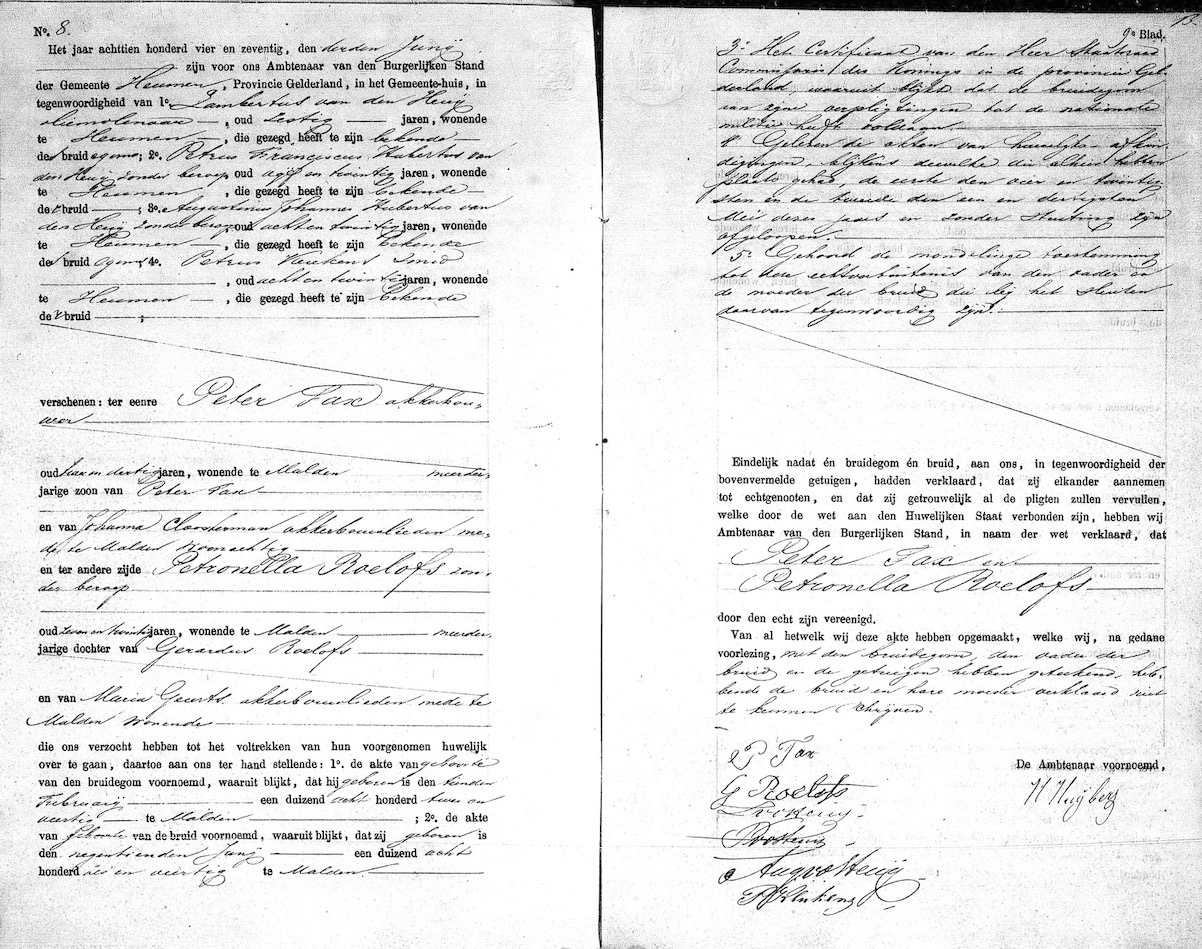 No. 8.
Het jaar achttien honderd vier en zeventig, den derden Junij
zijn voor ons Ambtenaar van den Burgerlijken Stand
der Gemeente Heumen, Provincie Gelderland, in het Gemeente-huis, in
tegenwoordigheid van 1o. Lambertus van den Heuij
oliemolenaar, oud zestig jaren, wonende
te Heumen, die gezegd heeft te zijn bekende
des bruidegoms; 2o. Petrus Franciscus Hubertus van
den Heuij zonder beroep oud vijf en twintig jaren, wonende
te Heumen, die gezegd heeft te zijn bekende
der bruid; 3o. Augustinus Johannes Hubertus van
den Heuij zonder beroep oud acht en twintig jaren, wonende
te Heumen, die gezegd heeft te zijn bekende
des bruidegoms; 4o. Petrus Heukens Smid
, oud acht en twintig jaren, wonende
te Heumen, die gezegd heeft te zijn bekende
der bruid ;
verschenen: ter eenre Peter Tax akkerbou-
wer
oud twee en dertig jaren, wonende te Malden meerder-
jarige zoon van Peter Tax
en van Johanna Cloosterman akkerbouwlieden me-
de te Malden woonachtig
en ter andere zijde Petronella Roelofs zon-
der beroep
oud zeven en twintig jaren, wonende te Malden meerder-
jarige dochter van Gerardus Roelofs
en van Maria Geurts akkerbouwlieden mede te
Malden wonende
die ons verzocht hebben tot het voltrekken van hun voorgenomen huwelijk
over te gaan, daartoe aan ons ter hand stellende: 1o. de akte van geboorte
van den bruidegom voornoemd, waaruit blijkt, dat hij geboren is den tienden
Februarij een duizend acht honderd twee en
veertig te Malden ; 2o. de akte
van geboorte van de bruid voornoemd, waaruit blijkt, dat zij geboren is
den negentienden Junij een duizend acht
honderd zes en veertig te Malden
15.
9e Blad.
3o Het Certificaat van den Heer Staatsraad
Commissaris des Konings in de provincie Gel-
derland, waaruit blijkt dat de bruidegom
aan zijne verpligtingen tot de nationale
militie heeft voldaan.
4o Gelezen de akten van huwelijks-afkon-
digingen, blijkens dewelke die alhier hebben
plaats gehad, de eerste den vier en twintig-
sten en de tweede den een en dertigsten
Mei dezes jaars en zonder stuiting zijn
afgeloopen.
5o Gehoord de mondelinge toestemming
tot deze echtverbintenis van den vader en
de moeder der bruid die bij het sluiten
daarvan tegenwoordig zijn.
Eindelijk nadat én bruidegom én bruid, aan ons, in tegenwoordigheid der
bovenvermelde getuigen, hadden verklaard, dat zij elkander aannemen
tot echtgenooten, en dat zij getrouwelijk al de pligten zullen vervullen,
welke door de wet aan den Huwelijken Staat verbonden zijn, hebben wij
Ambtenaar van den Burgerlijken Stand, in naam der wet verklaard, dat
Peter Tax en
Petronella Roelofs
door den echt zijn vereenigd.
Van al hetwelk wij deze akte hebben opgemaakt, welke wij, na gedane
voorlezing, met den bruidegom, den vader der
bruid en de getuigen hebben geteekend, heb-
bende de bruid en hare moeder verklaard niet
te kunnen schrijven.
P Tax
G Roelofs
De Ambtenaar voornoemd,